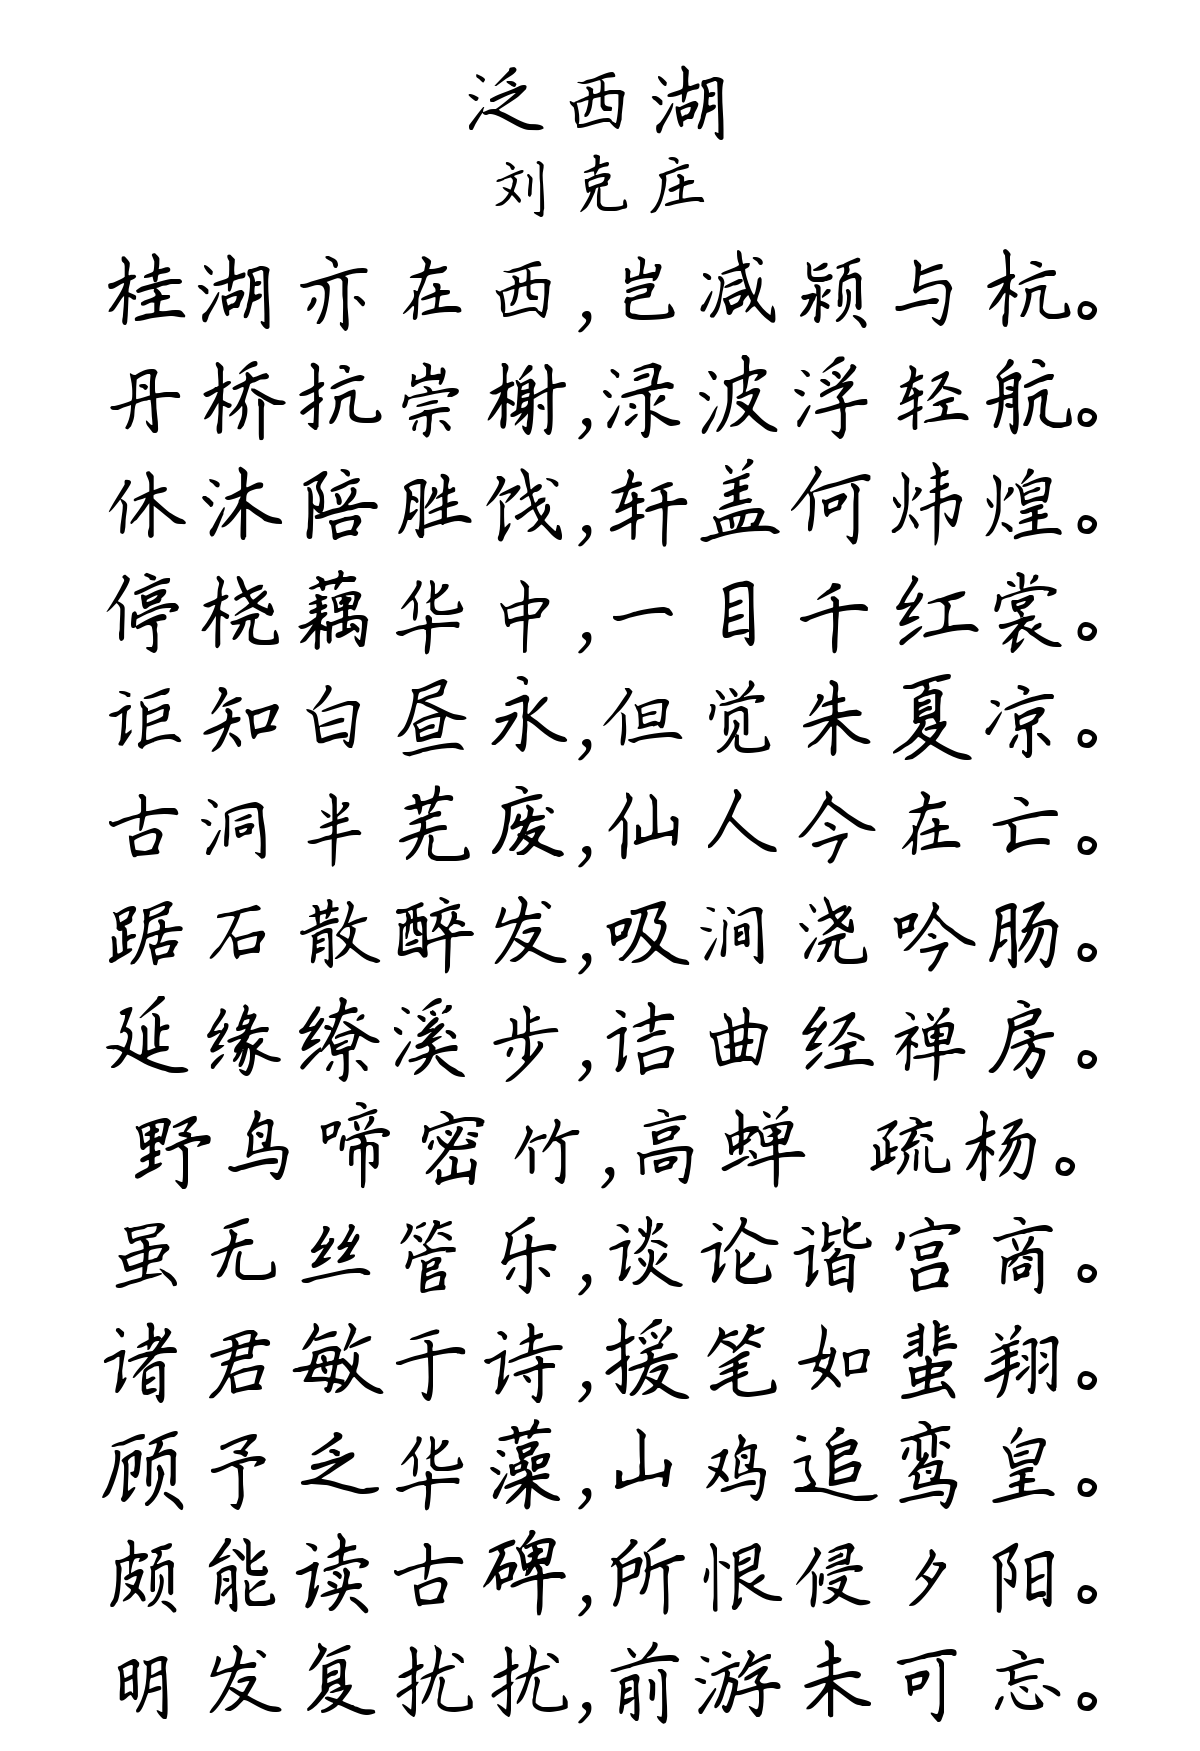 泛西湖
刘克庄
桂湖亦在西,岂减颍与杭。
丹桥抗崇榭,渌波浮轻航。
休沐陪胜饯,轩盖何炜煌。
停桡藕华中,一目千红裳。
讵知白昼永,但觉朱夏凉。
古洞半芜废,仙人今在亡。
踞石散醉发,吸涧浇吟肠。
延缘缭溪步,诘曲经禅房。
野鸟啼密竹,高蝉 疏杨。
虽无丝管乐,谈论谐宫商。
诸君敏于诗,援笔如蜚翔。
顾予乏华藻,山鸡追鸾皇。
颇能读古碑,所恨侵夕阳。
明发复扰扰,前游未可忘。